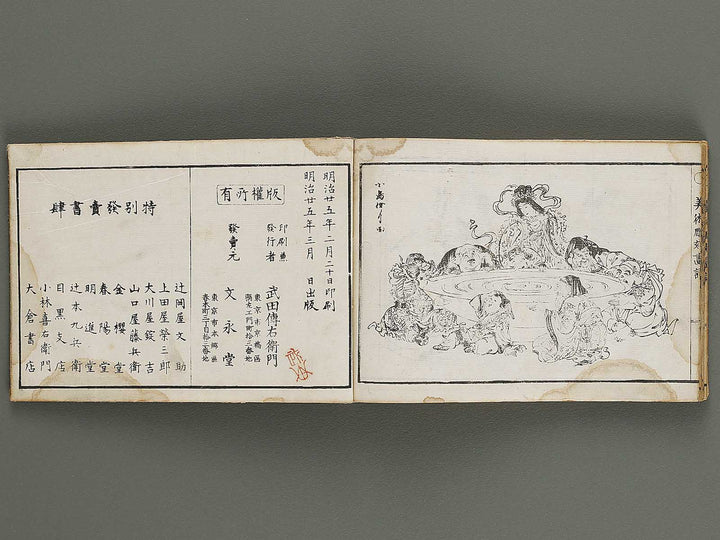 明治廿五年二月二十日印刷
明治廿五年三月 日出版
版權所有
印刷兼
發行者
武田傳右衛門
東京市京橋區
發賣元
文永堂
東京市本郷區
春木町三丁目拾三番地
特別發賣書肆
辻岡屋文助
上田屋榮三郎
大川屋錠吉
山口屋藤兵衛
金櫻堂
春陽堂
明進堂
辻本九兵衛
目黒支店
小林喜右衛門
大倉書店